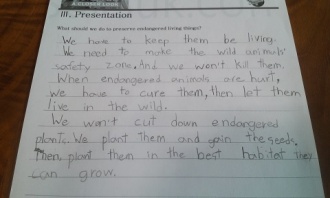 A CLOSER LOOK
III. Presentation
What should we do to preserve endangered living things?
We have to keep them be living.
We need to make the wild animals'
safety zone. And we won't kill them.
When endangered animals are hurt,
we have to cure them, then let them
live in the wild.
We won't cut down endangered
plants. We plant them and gain the seeds.
Then, plant them in the best habitat they
can grow.